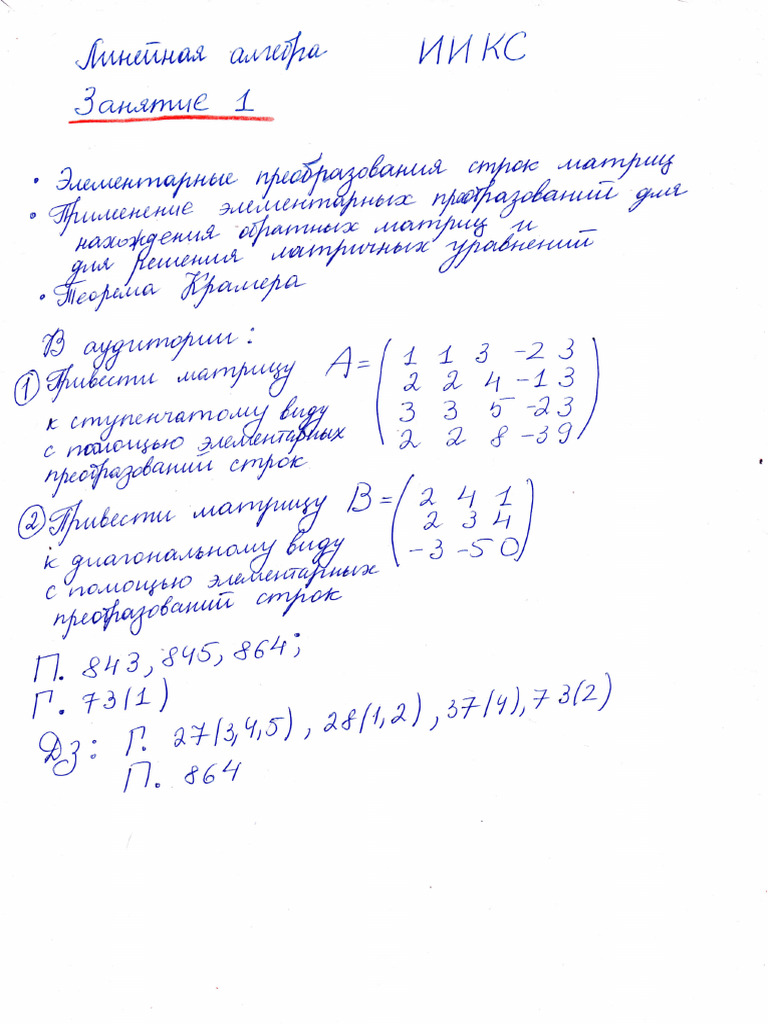 Линейная алгебра ИИКС
Занятие 1
• Элементарные преобразования строк матриц
• Применение элементарных преобразований для
нахождения обратных матриц и
для решения матричных уравнений
• Теорема Крамера
В аудитории:
① Привести матрицу A = ( 1 1 3 -2 3
2 2 4 -1 3
3 3 5 -2 3
2 2 8 -3 9 )
к ступенчатому виду
с помощью элементарных
преобразований строк
② Привести матрицу B = ( 2 4 1
2 3 4
-3 -5 0 )
к диагональному виду
с помощью элементарных
преобразований строк
П. 843, 845, 864;
Г. 73(1)
ДЗ: Г. 27(3,4,5), 28(1,2), 37(4), 73(2)
П. 864